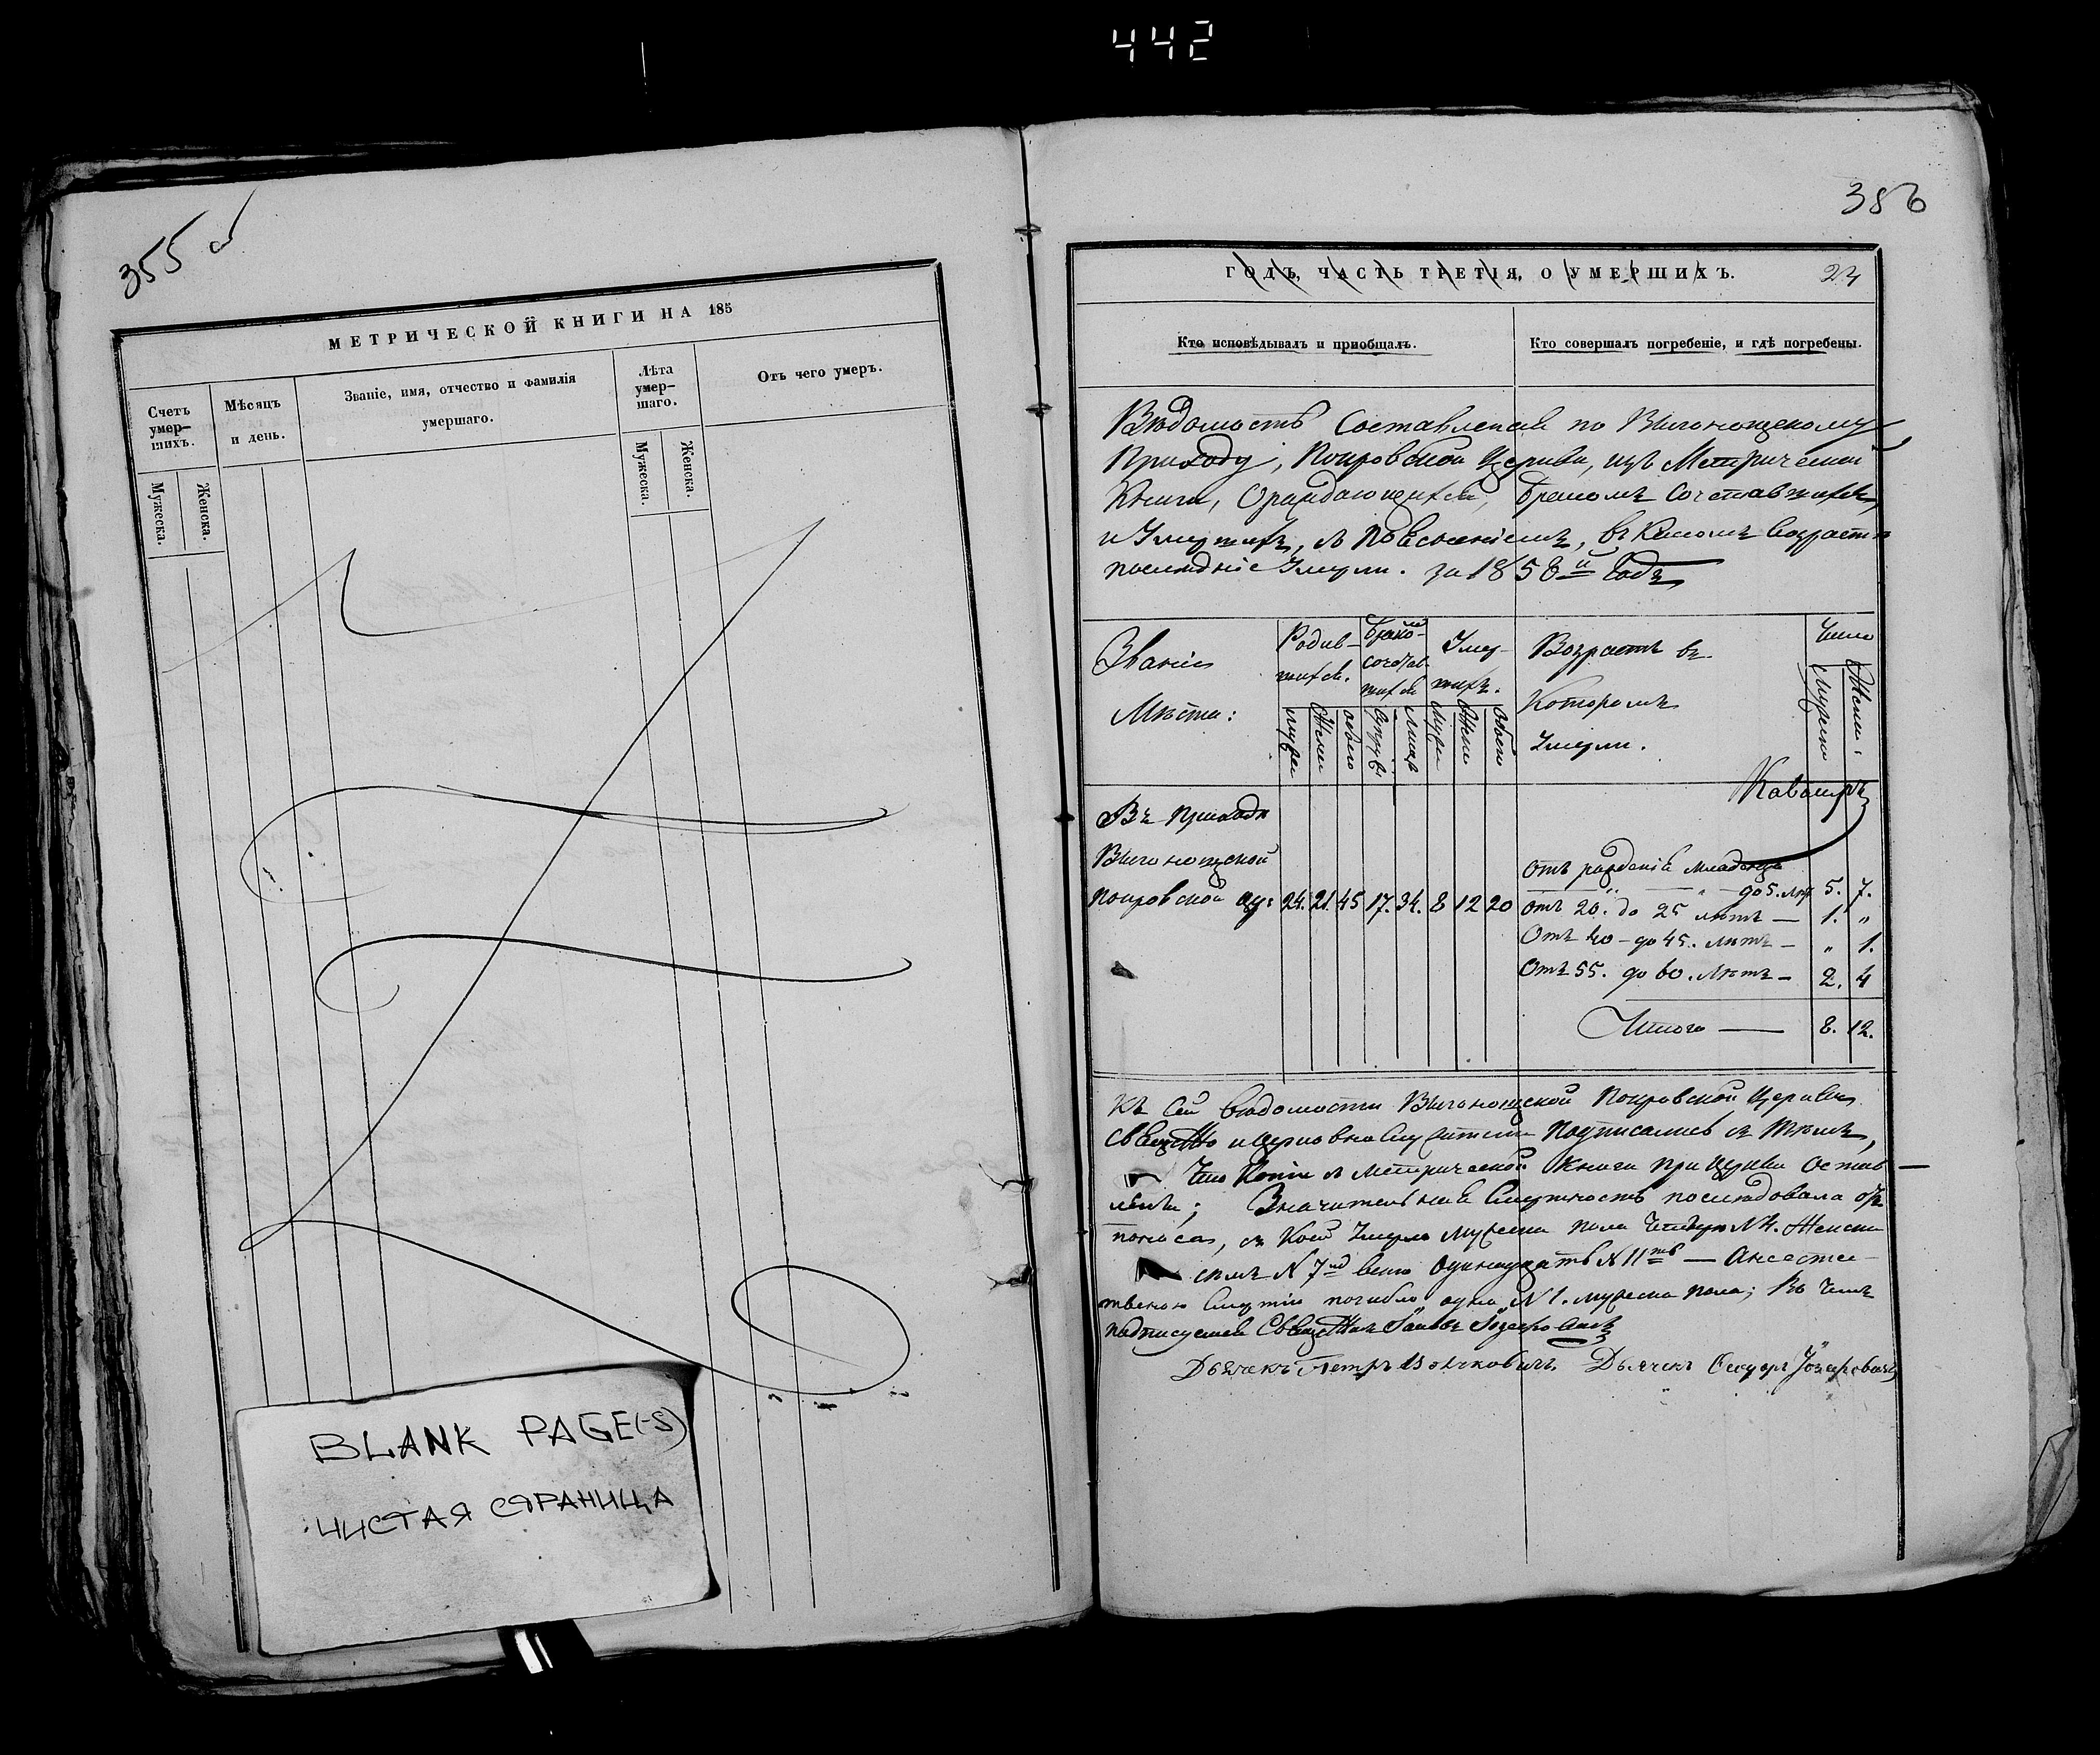 442
355 об
МЕТРИЧЕСКОЙ КНИГИ НА 185
Счетъ
умер-
шихъ.
Мѣсяцъ
и день.
Званіе, имя, отчество и фамилія
умершаго.
Лѣта
умер-
шаго.
Отъ чего умеръ.
Мужеска.
Женска.
Мужеска.
Женска.
BLANK PAGE(-S)
ЧИСТАЯ СТРАНИЦА
356
ГОДЪ, ЧАСТЬ ТРЕТІЯ, О УМЕРШИХЪ.
Кто исповѣдывалъ и пріобщалъ.
Кто совершалъ погребеніе, и гдѣ погребены.
Вѣдомость Составленая по Выгонощскому
Приходу, Покровской Церкви, изъ Метрической
Книги, Браком Сочетавшихся,
и Умершихъ, въ Какомъ Возрастѣ
послѣдніе Умерли. за 1858й Годъ
Званіе
Мѣста:
Родив-
шихся.
Брако-
сочетав-
шихся
Умер-
шихъ.
Возрастъ въ
Которомъ
Умерли.
Число
Мужеска
Женск:
Въ Приходѣ
Выгонощской
Покровской Цер: 24. 21. 45 17. 34. 8 12 20
Отъ рожденія младенца
до 5. лѣт 5. 7.
Отъ 20. до 25 лѣтъ — 1. „
Отъ 40 – до 45. лѣтъ – „ 1.
Отъ 55. до 60. Лѣтъ – 2. 4
Итого — 8. 12.
Къ Сей вѣдомости Выгонощской Покровской Церкви
Подписались съ Тѣмъ,
Что Копія Метрической Книги при Церкви Остав-
лена; Значительная Смертность послѣдовала отъ
поноса, съ Коей Умерло Мужеска пола Четыре N 4. Женска
N 7 всего Одинадцать N 11ть — Анеесте-
твеною Смертію погибло одна N 1. мужеска пола; Въ Чемъ
Дьячекъ Петръ Дьячекъ